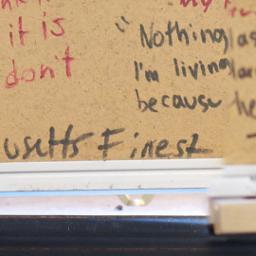 it is
don't
"Nothing
I'm living
because
usetts Finest